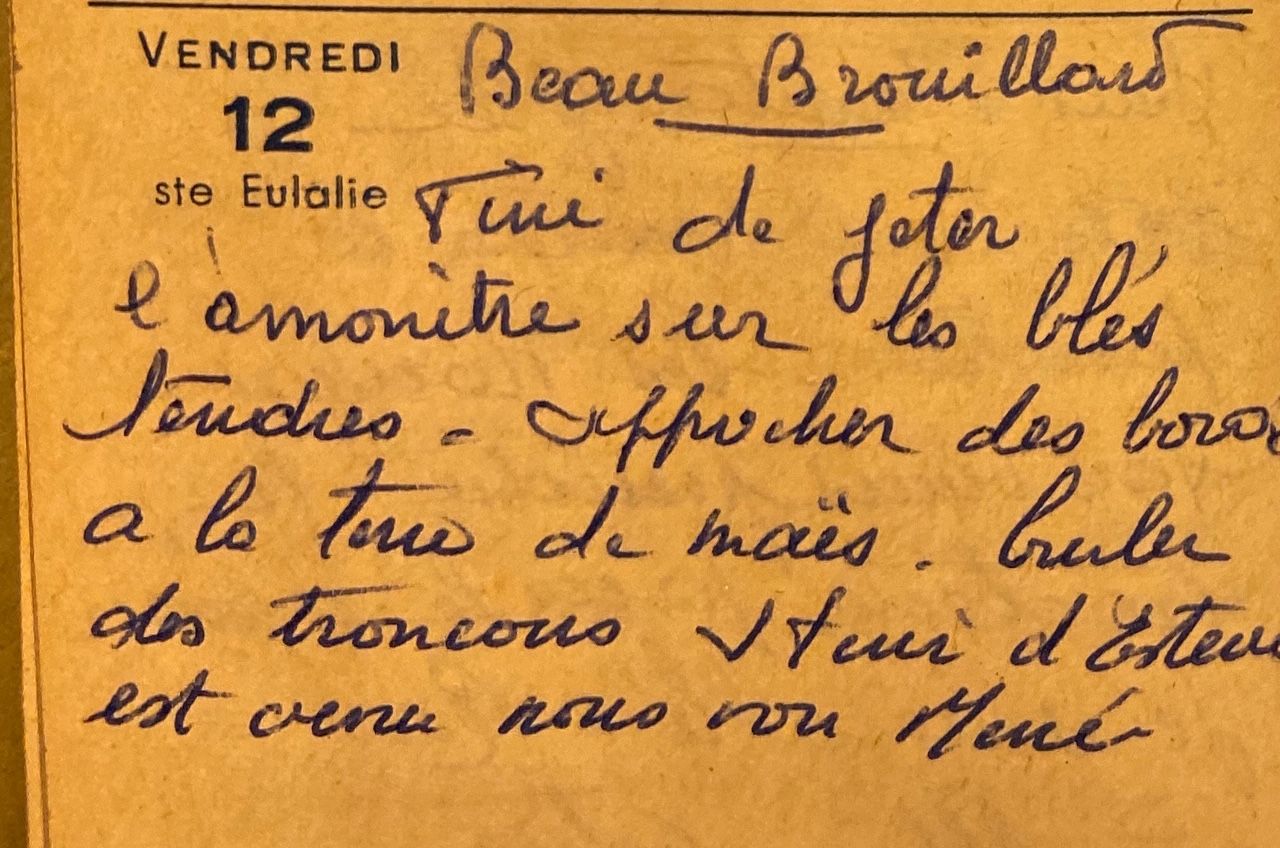 VENDREDI Beau Brouillard
12
ste Eulalie Fini de jeter
l'amonitre sur les blés
tendres - approcher des bords
a la terre de maïs. bruler
des troncons Henri d'Esteve
est venu nous voir